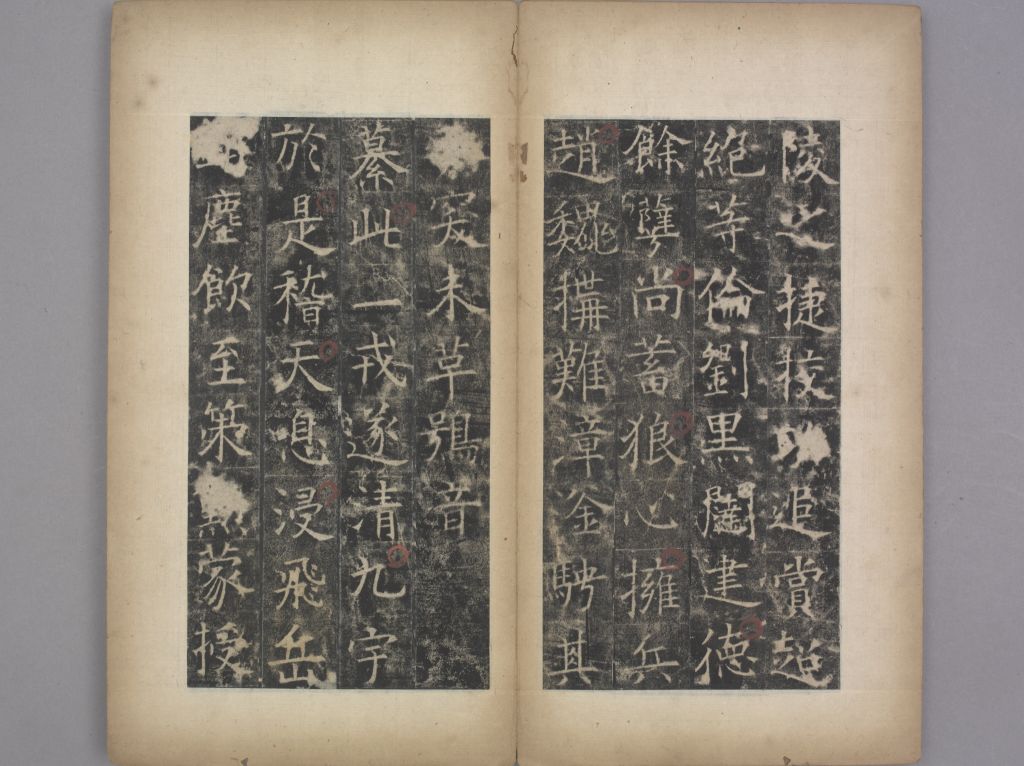 陵之捷挍追賞超
絕等倫劉黑闥建德
餘孽尚蓄狼心擁兵
趙魏搆難章釜騁其
未草鴞音
此一戎遂清九宇
於是稽天息浸飛岳
塵飲至策蒙授